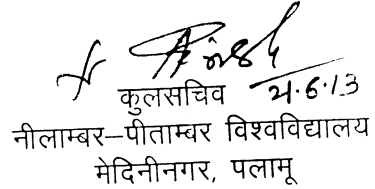 कुलसचिव 21.6.13
नीलाम्बर–पीताम्बर विश्वविद्यालय
मेदिनीनगर, पलामू